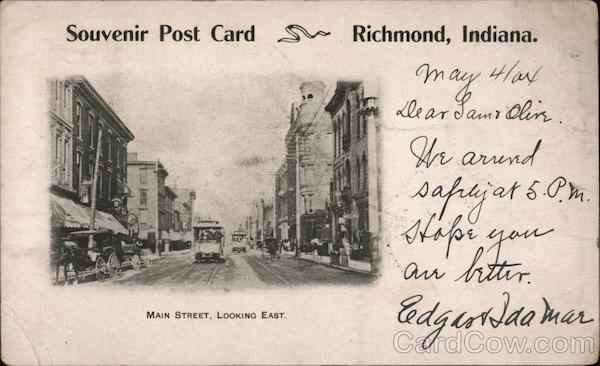 Souvenir Post Card Richmond, Indiana.
May 4/04
Dear Sam & Olive.
We arrived
safely at 5. P.M.
Hope you
are better.
Edgar & Ida Mae
MAIN STREET, LOOKING EAST.
CardCow.com